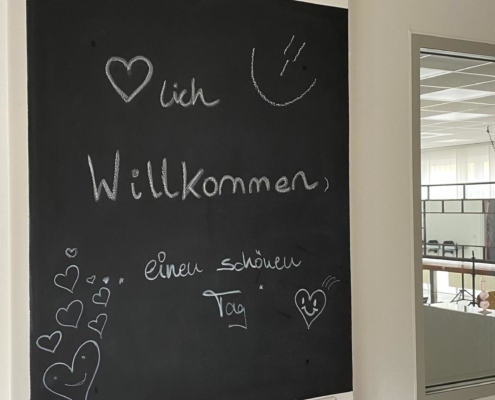 ♡lich
Willkommen,
einen schönen
Tag